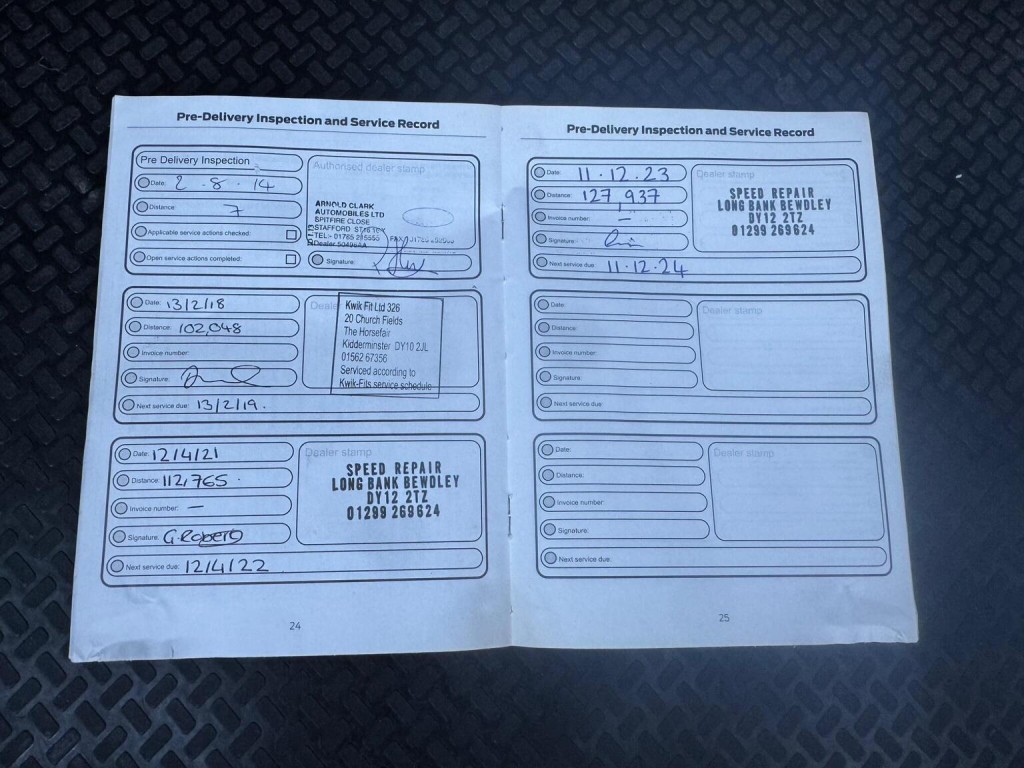 Pre-Delivery Inspection and Service Record
Pre Delivery Inspection
Date: 2.8.14
Distance: 7
Applicable service actions checked:
Open service actions completed:
Authorised dealer stamp
ARNOLD CLARK
AUTOMOBILES LTD
SPITFIRE CLOSE
STAFFORD
TEL:- 01785
FAX
Dealer
Signature:
Date: 13/2/18
Distance: 102,048
Invoice number:
Signature:
Next service due: 13/2/19.
Kwik Fit Ltd 326
20 Church Fields
The Horsefair
Kidderminster DY10 2JL
01562 67356
Serviced according to
Kwik-Fits service schedule
Date: 12/4/21
Distance: 112,765.
Invoice number: —
Signature: G. Roberts
Next service due: 12/4/22
Dealer stamp
SPEED REPAIR
LONG BANK BEWDLEY
DY12 2TZ
01299 269624
24
Pre-Delivery Inspection and Service Record
Date: 11.12.23
Distance: 127,937
Invoice number: —
Signature:
Next service due: 11.12.24
Dealer stamp
SPEED REPAIR
LONG BANK BEWDLEY
DY12 2TZ
01299 269624
Date:
Distance:
Invoice number:
Signature:
Next service due:
Dealer stamp
Date:
Distance:
Invoice number:
Signature:
Next service due:
Dealer stamp
25